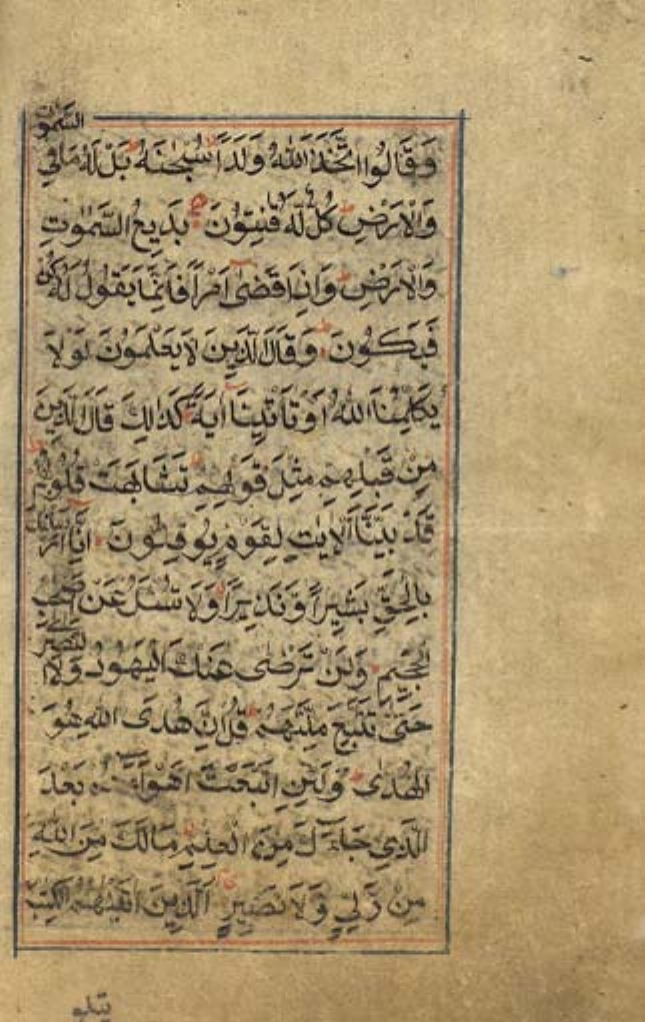 السَّمٰوٰتِ
وَقَالُوا اتَّخَذَ اللّٰهُ وَلَدًا سُبْحٰنَهُ بَلْ لَهُ مَا فِي
وَالْاَرْضِ كُلٌّ لَهُ قٰنِتُونَ بَدِيعُ السَّمٰوٰتِ
وَالْاَرْضِ وَاِذَا قَضٰى اَمْرًا فَاِنَّمَا يَقُولُ لَهُ كُنْ
فَيَكُونُ وَقَالَ الَّذِينَ لَا يَعْلَمُونَ لَوْلَا
يُكَلِّمُنَا اللّٰهُ اَوْ تَاْتِينَا اٰيَةٌ كَذٰلِكَ قَالَ الَّذِينَ
مِنْ قَبْلِهِمْ مِثْلَ قَوْلِهِمْ تَشَابَهَتْ قُلُوبُهُمْ
قَدْ بَيَّنَّا الْاٰيٰتِ لِقَوْمٍ يُوقِنُونَ اِنَّا اَرْسَلْنَاكَ
بِالْحَقِّ بَشِيرًا وَنَذِيرًا وَلَا تُسْئَلُ عَنْ اَصْحٰبِ
الْجَحِيمِ وَلَنْ تَرْضٰى عَنْكَ الْيَهُودُ وَلَا النَّصٰرٰى
حَتّٰى تَتَّبِعَ مِلَّتَهُمْ قُلْ اِنَّ هُدَى اللّٰهِ هُوَ
الْهُدٰى وَلَئِنِ اتَّبَعْتَ اَهْوَاءَهُمْ بَعْدَ
الَّذِي جَاءَكَ مِنَ الْعِلْمِ مَا لَكَ مِنَ اللّٰهِ
مِنْ وَلِيٍّ وَلَا نَصِيرٍ اَلَّذِينَ اٰتَيْنٰهُمُ الْكِتٰبَ
يتلو